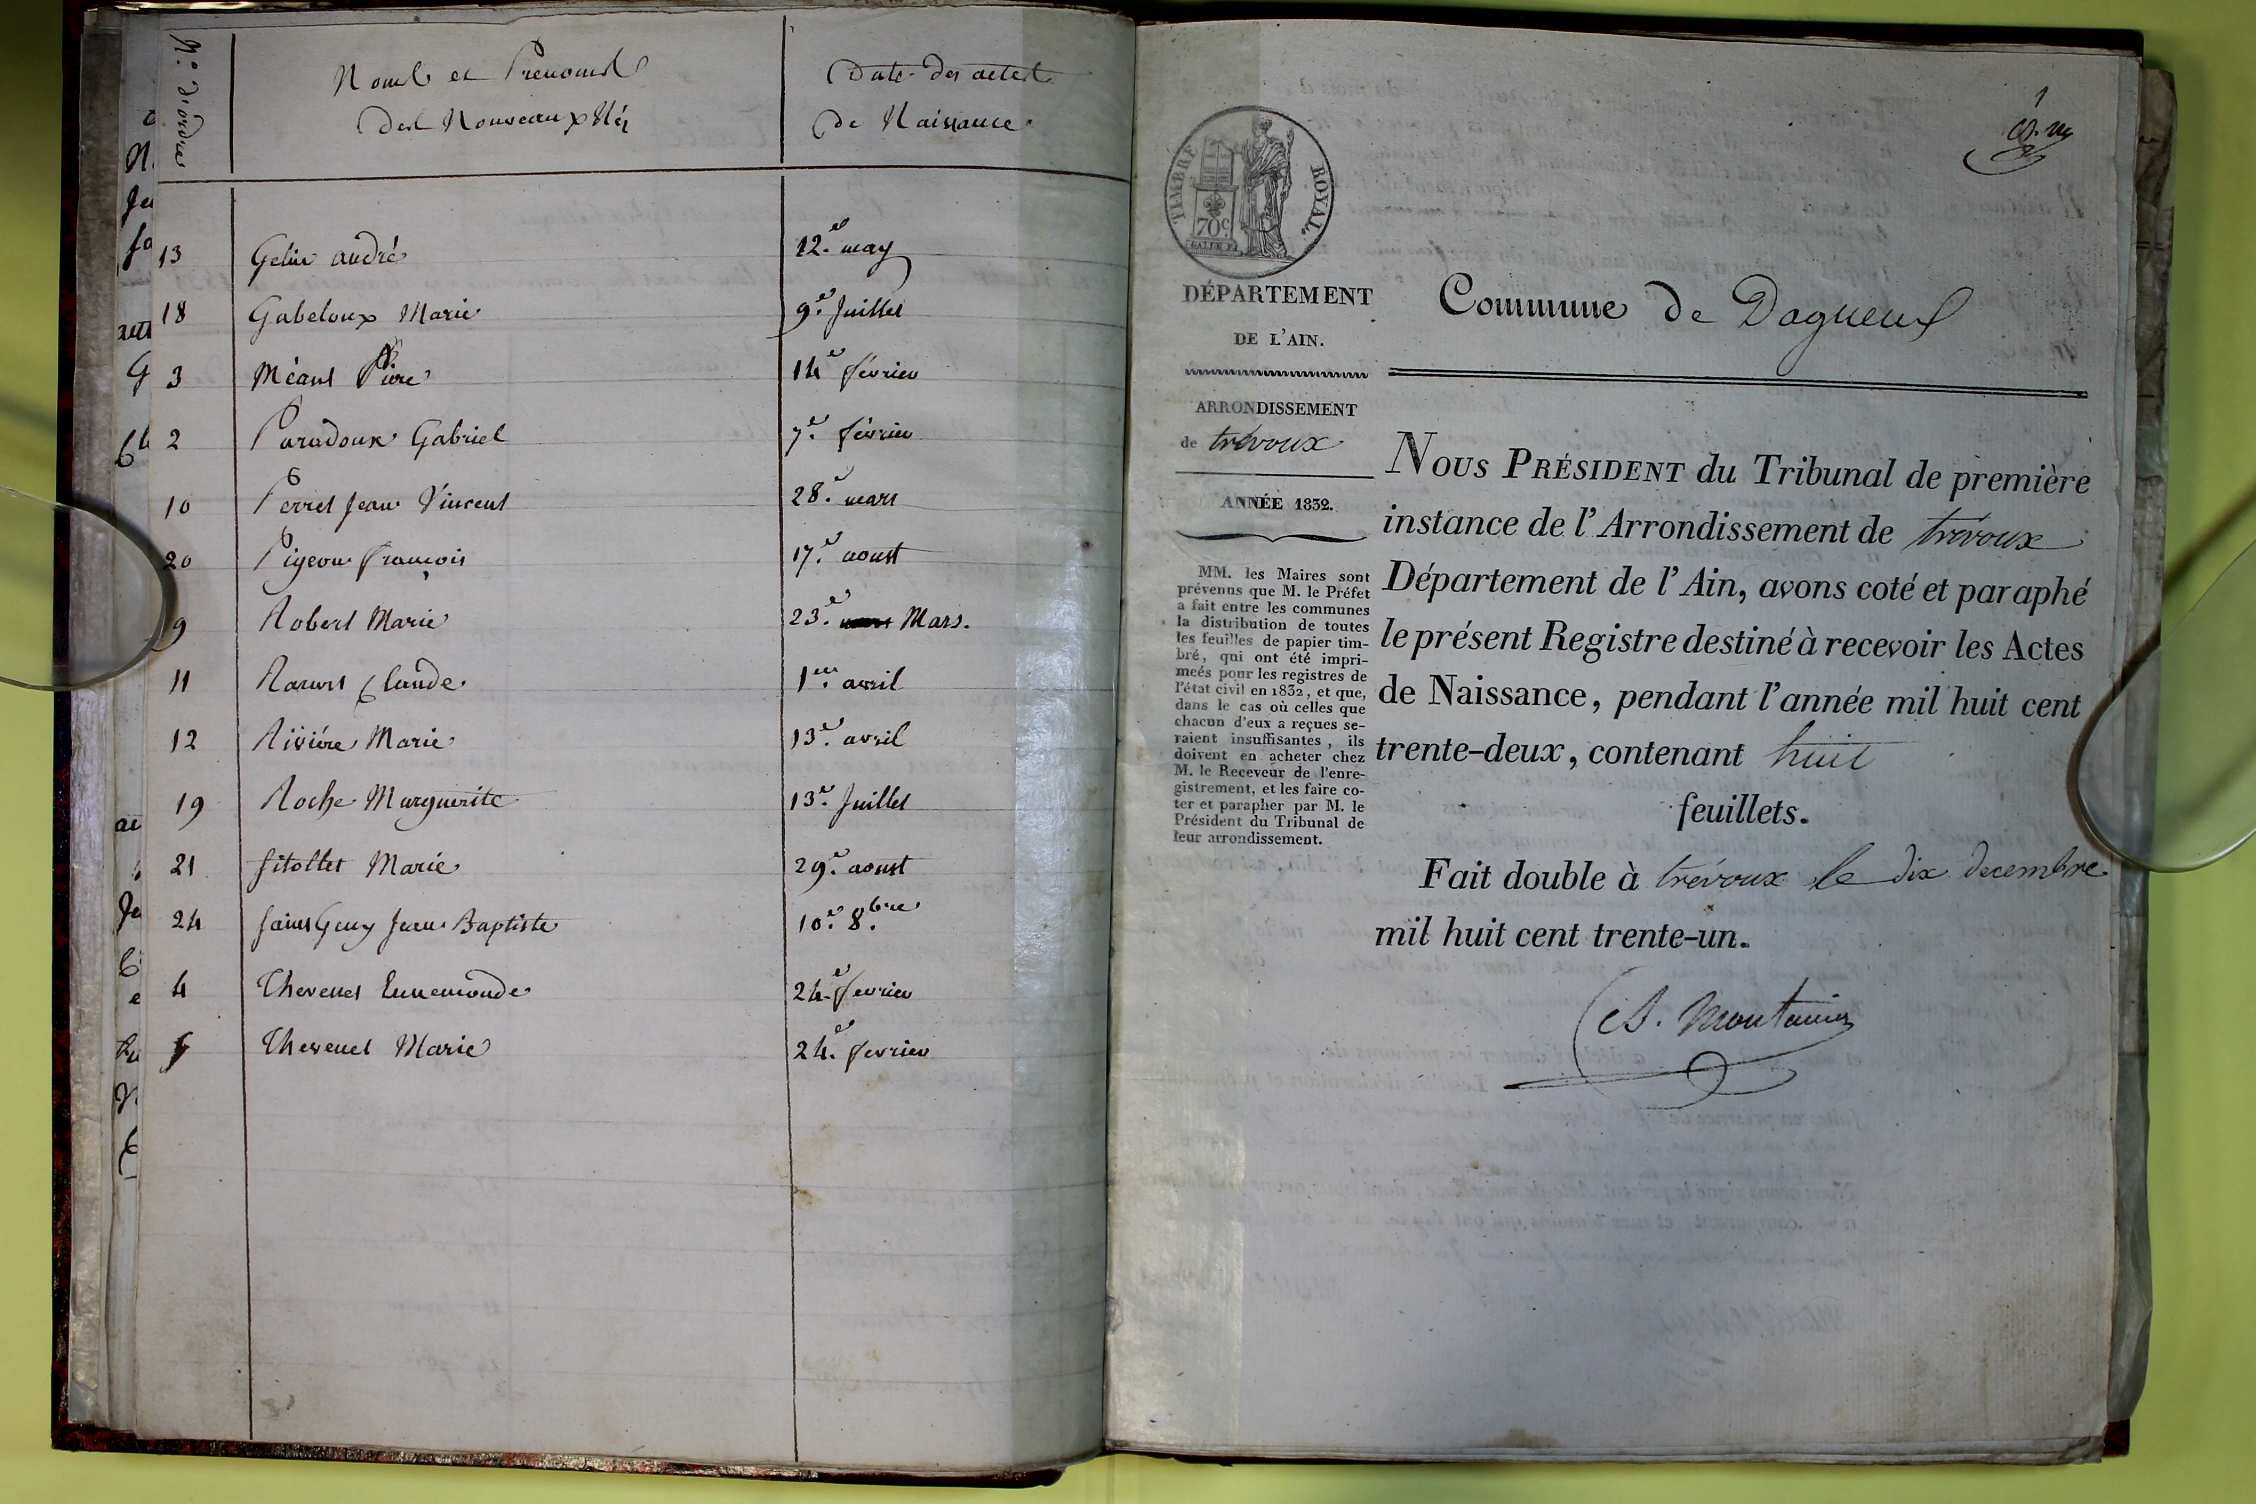 N.º d'ordres
Noms et Prenoms
des Nouveaux Nés
Date des actes
de Naissance.
13 Gelin andré 12.e may
18 Gabeloux Marie 9.e Juillet
3 Méant Piere 14e février
2 Paradoux Gabriel 7.e février
10 Perret Jean Vincent 28.e mars
20 Pigeon françois 17.e aoust
9 Robert Marie 23.e Mars.
11 Claude 1er. avril
12 Riviére Marie 13e. avril
19 Roche Marguerite 13e. Juillet
21 Sitollet Marie 29.e aoust
24 Jean Baptiste 10.e 8.bre
4 Thevenet Ennemonde 24e fevrier
5 Thevenet Marie 24.e fevrier
1
TIMBRE ROYAL.
70c
DÉPARTEMENT
DE L'AIN.
Commune de Dagneux
ARRONDISSEMENT
de trévoux
ANNÉE 1832.
MM. les Maires sont
prévenus que M. le Préfet
a fait entre les communes
la distribution de toutes
les feuilles de papier tim-
bré, qui ont été impri-
meés pour les registres de
l'état civil en 1832, et que,
dans le cas où celles que
chacun d'eux a reçues se-
raient insuffisantes, ils
doivent en acheter chez
M. le Receveur de l'enre-
gistrement, et les faire co-
ter et parapher par M. le
Président du Tribunal de
leur arrondissement.
NOUS PRÉSIDENT du Tribunal de première
instance de l'Arrondissement de trévoux
Département de l'Ain, avons coté et paraphé
le présent Registre destiné à recevoir les Actes
de Naissance, pendant l'année mil huit cent
trente-deux, contenant huit
feuillets.
Fait double à trévoux le dix decembre
mil huit cent trente-un.